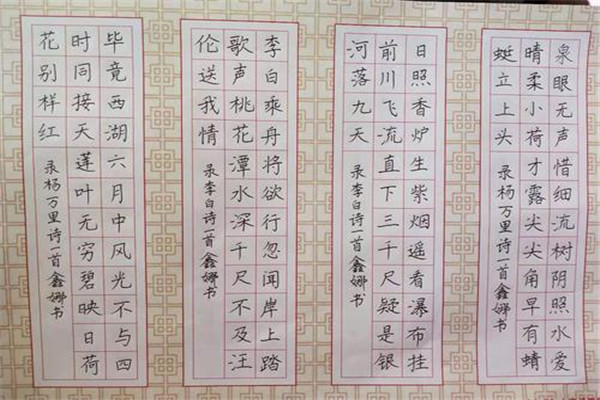 泉眼无声惜细流树阴照水爱
晴柔小荷才露尖尖角早有蜻
蜓立上头 录杨万里诗一首鑫娜书
日照香炉生紫烟遥看瀑布挂
前川飞流直下三千尺疑是银
河落九天 录李白诗一首鑫娜书
李白乘舟将欲行忽闻岸上踏
歌声桃花潭水深千尺不及汪
伦送我情 录李白诗一首鑫娜书
毕竟西湖六月中风光不与四
时同接天莲叶无穷碧映日荷
花别样红 录杨万里诗一首鑫娜书